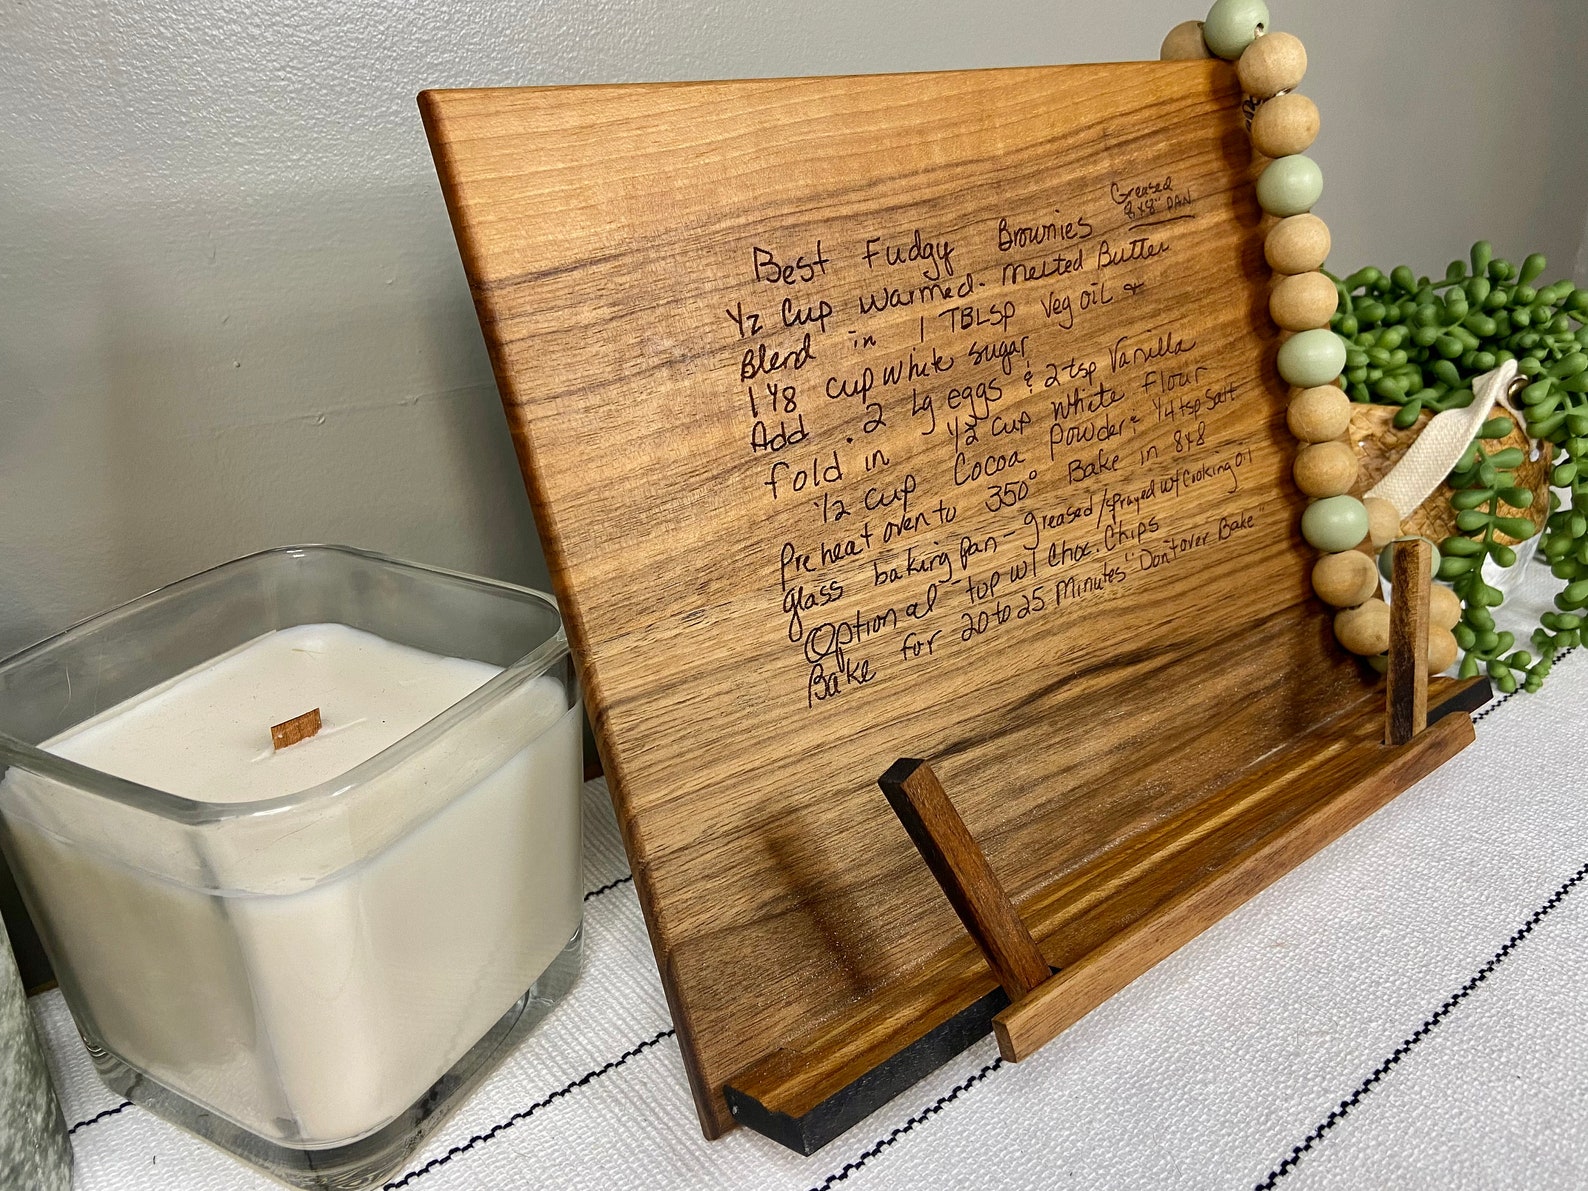 Best Fudgy Brownies
Greased
8x8" PAN
1/2 Cup Warmed - Melted Butter
Blend in 1 TBLSp Veg Oil +
1 1/8 Cup White Sugar
Add . 2 Lg eggs & 2 tsp Vanilla
fold in 1/2 Cup White Flour
1/2 Cup Cocoa Powder & 1/4 tsp Salt
Preheat oven to 350° Bake in 8x8
glass baking pan - greased/sprayed w/ Cooking Oil
Optional - top w/ Choc. Chips
Bake for 20 to 25 Minutes "Don't over Bake"